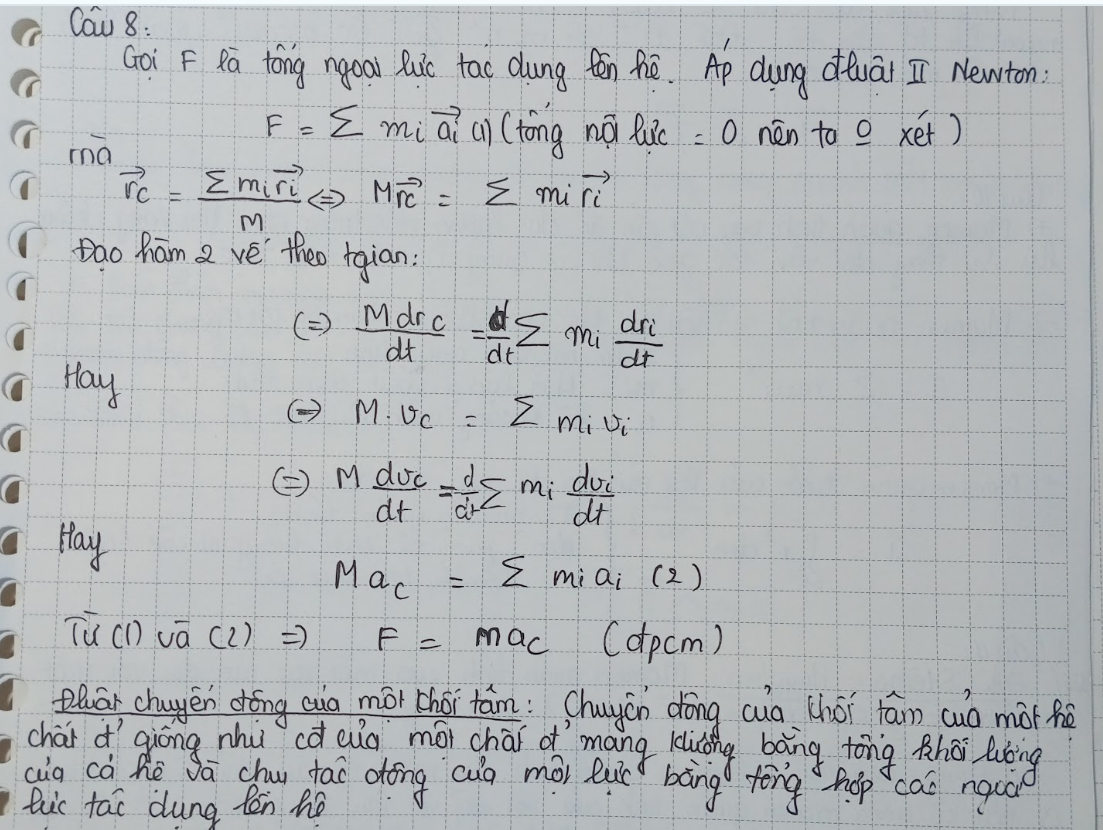 Câu 8:
Gọi F là tổng ngoại lực tác dụng lên hệ. Áp dụng đluật II Newton:
F = Σ mi ai⃗ (1) (tổng nội lực = 0 nên ta o xét)
mà
rc⃗ = Σ mi ri⃗ / M ⇔ M rc⃗ = Σ mi ri⃗
Đạo hàm 2 vế theo tgian:
(=) M drc / dt = d/dt Σ mi dri / dt
Hay
(=) M . vc = Σ mi vi
(=) M dvc / dt = d/dt Σ mi dvi / dt
Hay
M ac = Σ mi ai (2)
Từ (1) và (2) =) F = mac (đpcm)
Đluật chuyển động của một khối tâm: Chuyển động của khối tâm của một hệ
chất đ' giống như cđ của một chất đ' mang klượng bằng tổng khối lượng
của cả hệ và chụ tác động của một lực bằng tổng hợp các ngoại
lực tác dụng lên hệ